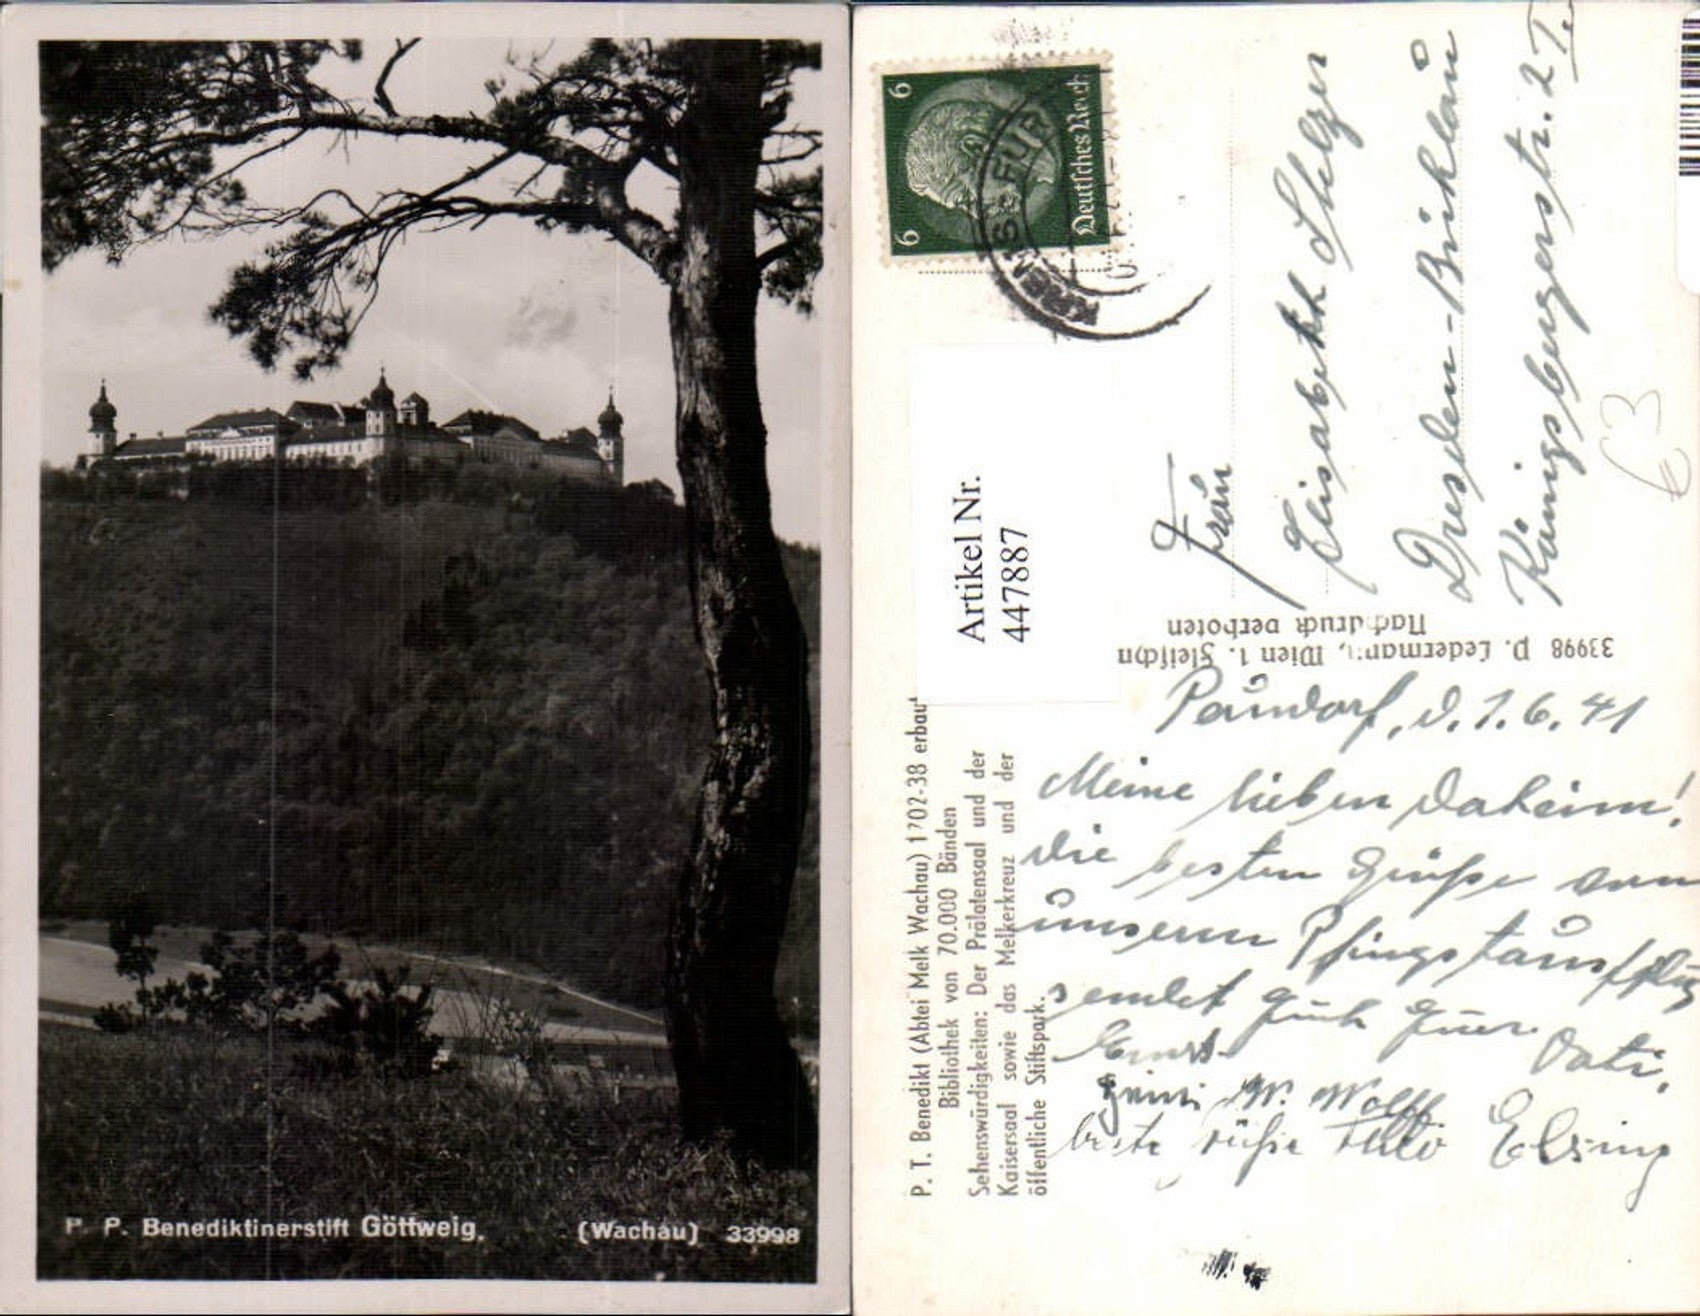 P. P. Benediktinerstift Göttweig, (Wachau) 33998
6
6
Deutsches Reich
KREMS
Artikel Nr.
447887
Frau
Elisabeth Stelzer
Dresden-Bühlau
Königsbergerstr. 2
€3
33998 P. Ledermann, Wien 1. Fleischm
Nachdruck verboten
P. T. Benedikt (Abtei Melk Wachau) 1702-38 erbaut
Bibliothek von 70.000 Bänden
Sehenswürdigkeiten: Der Prälatensaal und der
Kaisersaal sowie das Melkerkreuz und der
öffentliche Stiftspark.
d. 1. 6. 41
Meine lieben Daheim!
Die besten Grüße von
unserem Pfingstausflug
sendet Euch Euer
Vati.
W. Wolff
beste Grüße